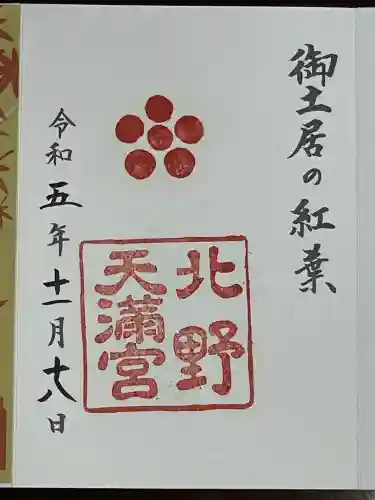 御土居の紅葉
北野
天満宮
令和五年十一月十八日